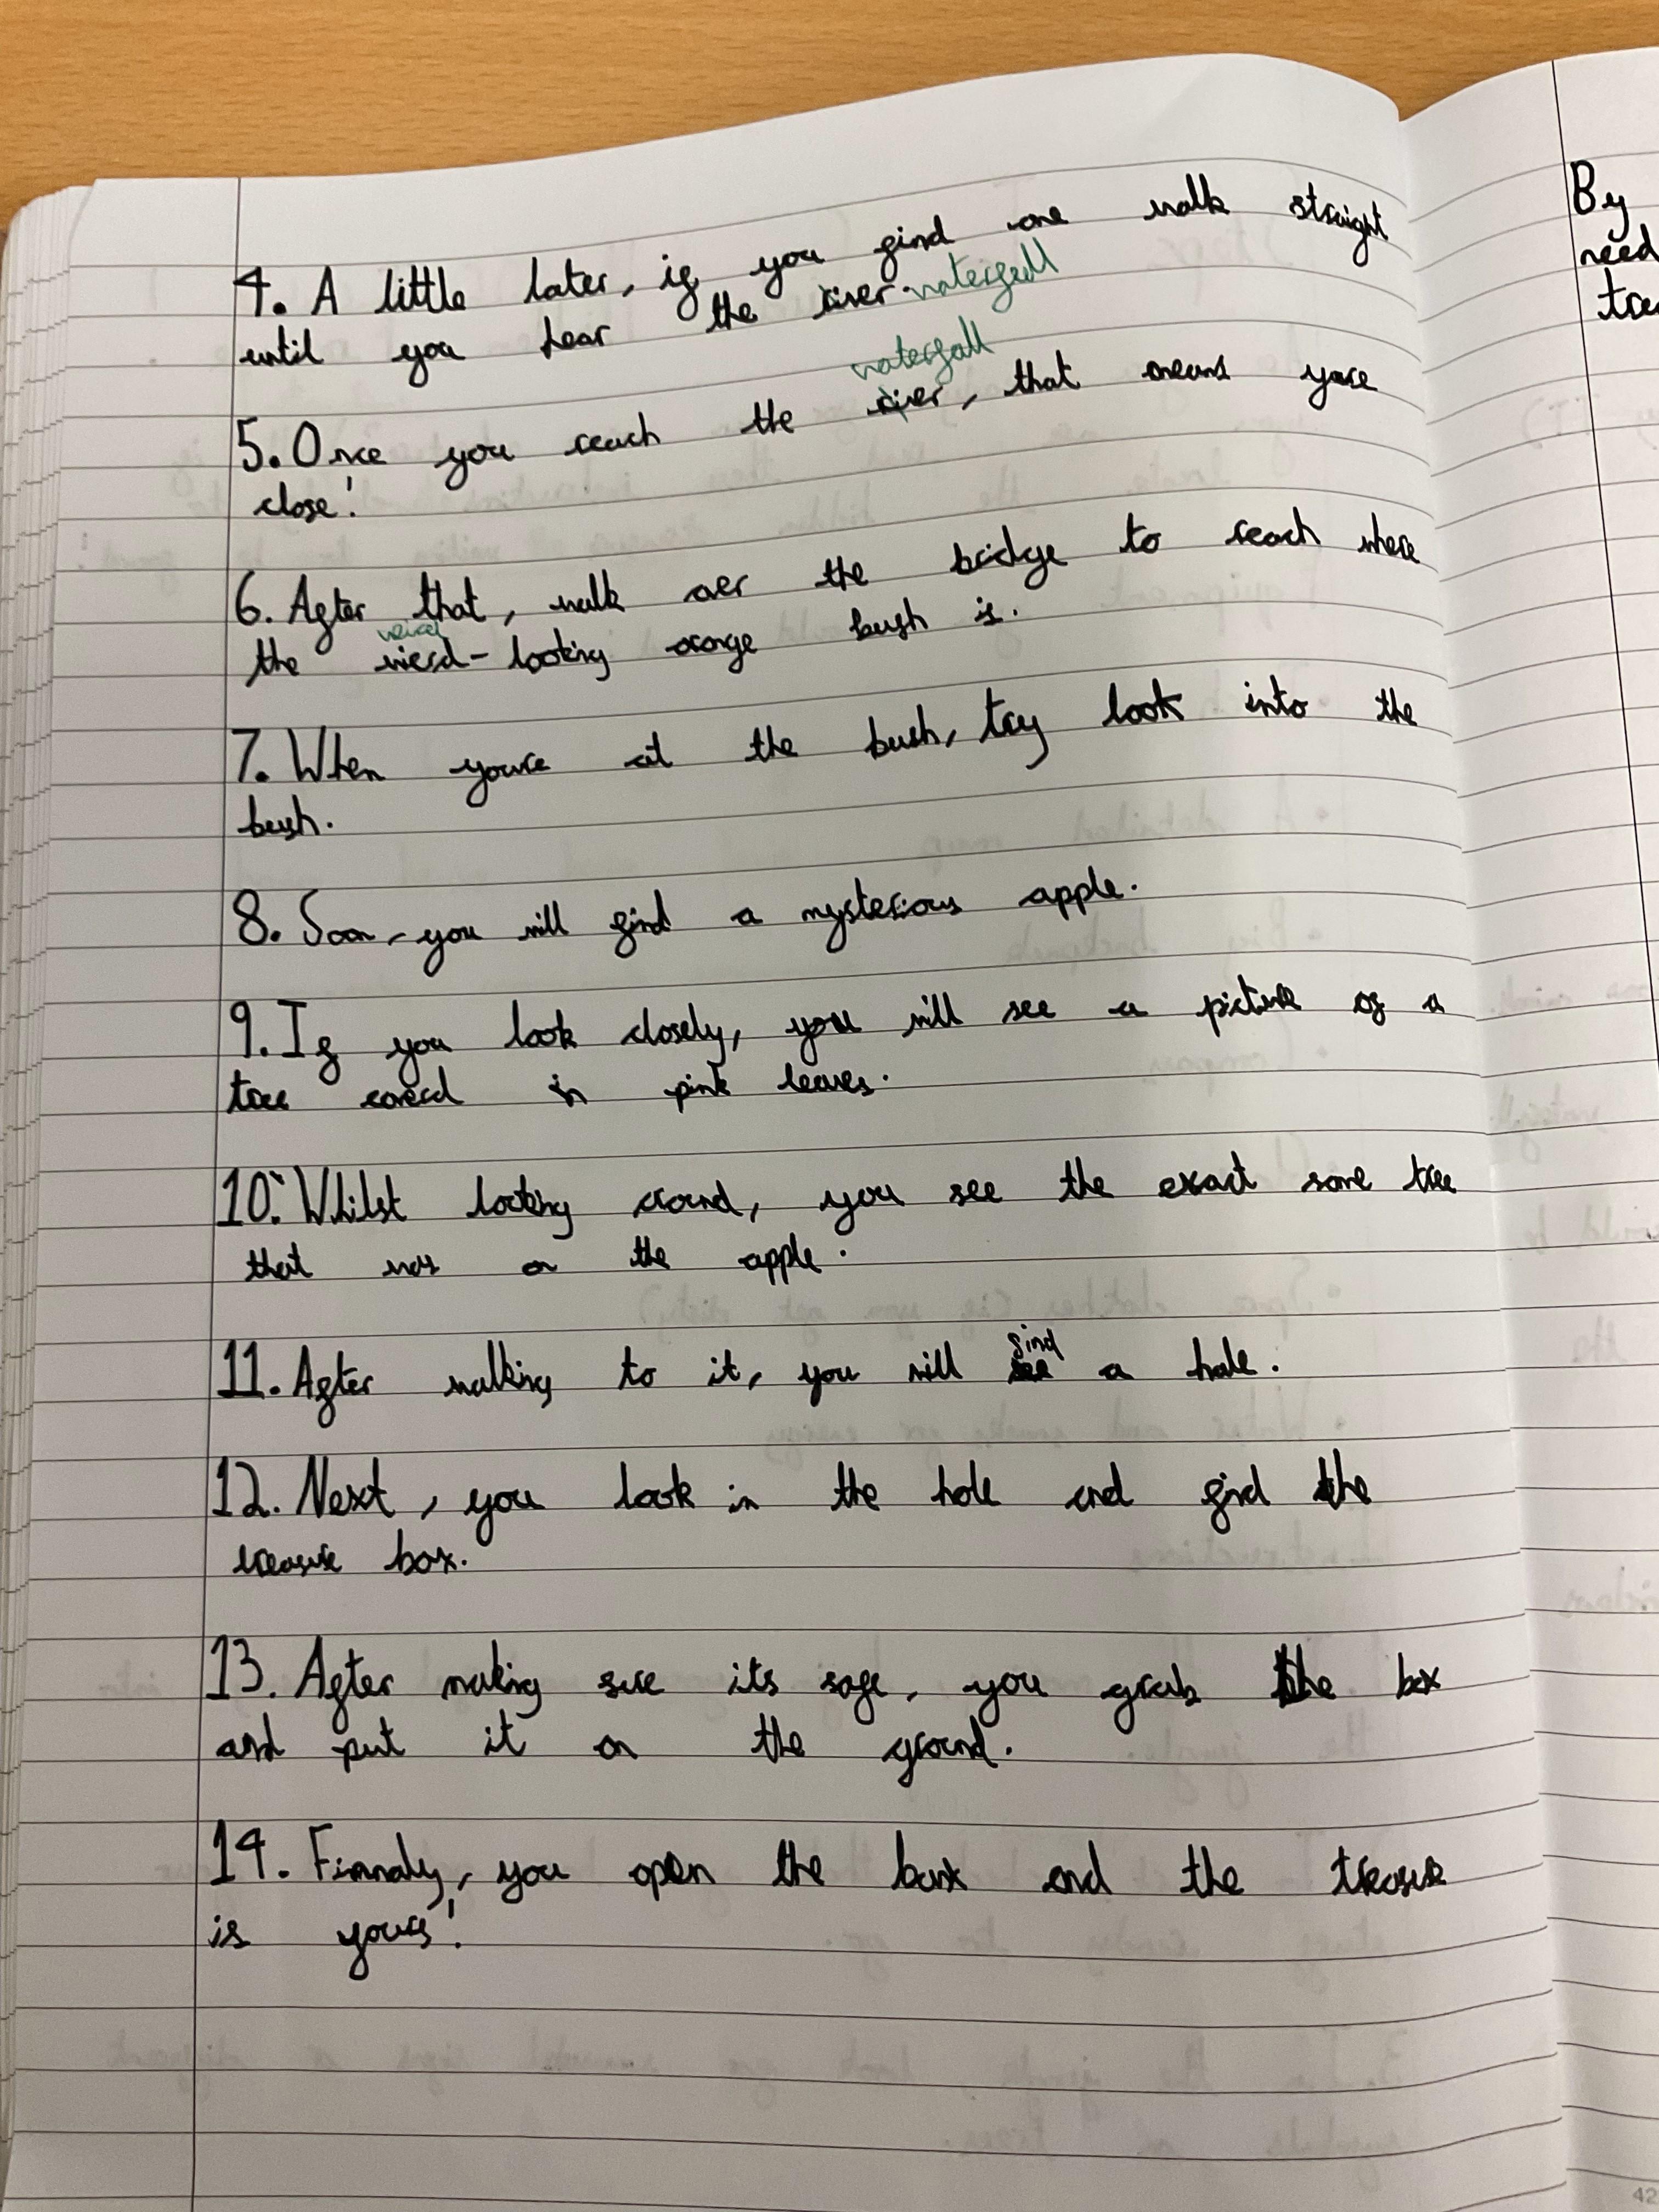 4. A little later, if you find one walk straight
until you hear the river. waterfall
waterfall
5. Once you reach the river, that means youre
close!
6. After that, walk over the bridge to reach where
weird
the wierd-looking orange bush is.
7. When youre at the bush, try look into the
bush.
8. Soon, you will find a mysterious apple.
9. If you look closely, you will see a picture of a
tree coverd in pink leaves.
10. Whilst looking around, you see the exact same tree
that was on the apple.
find
11. After walking to it, you will see a hole.
12. Next, you look in the hole and find the
treasure box.
13. After making sure its safe, you grab the box
and put it on the ground.
14. Finnaly, you open the box and the treasure
is yours!
By
need
42